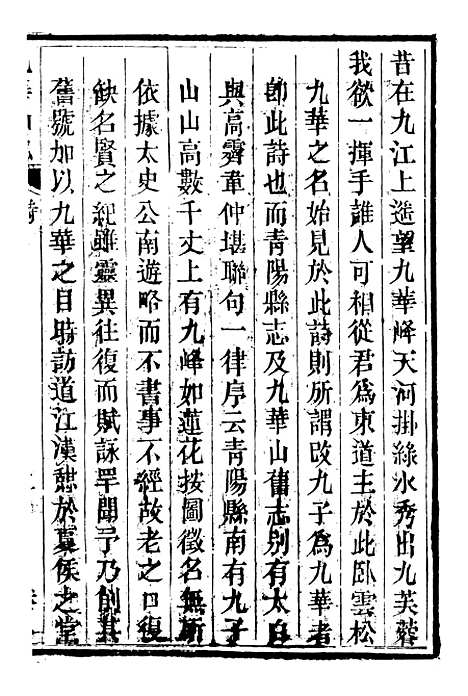 昔在九江上遥望九華峰天河掛綠水秀出九芙蓉
我欲一揮手誰人可相從君爲東道主於此卧雲松
九華之名始見於此詩則所謂改九子爲九華者
即此詩也而青陽縣志及九華山舊志别有太白
與高霽韋仲堪聯句一律序云青陽縣南有九子
山山高數千丈上有九峰如蓮花按圖徵名無所
依據太史公南遊略而不書事不經故老之口復
缺名賢之紀雖靈異往復而賦詠罕聞予乃削其
舊號加以九華之目時訪道江漢憩於夏侯之堂